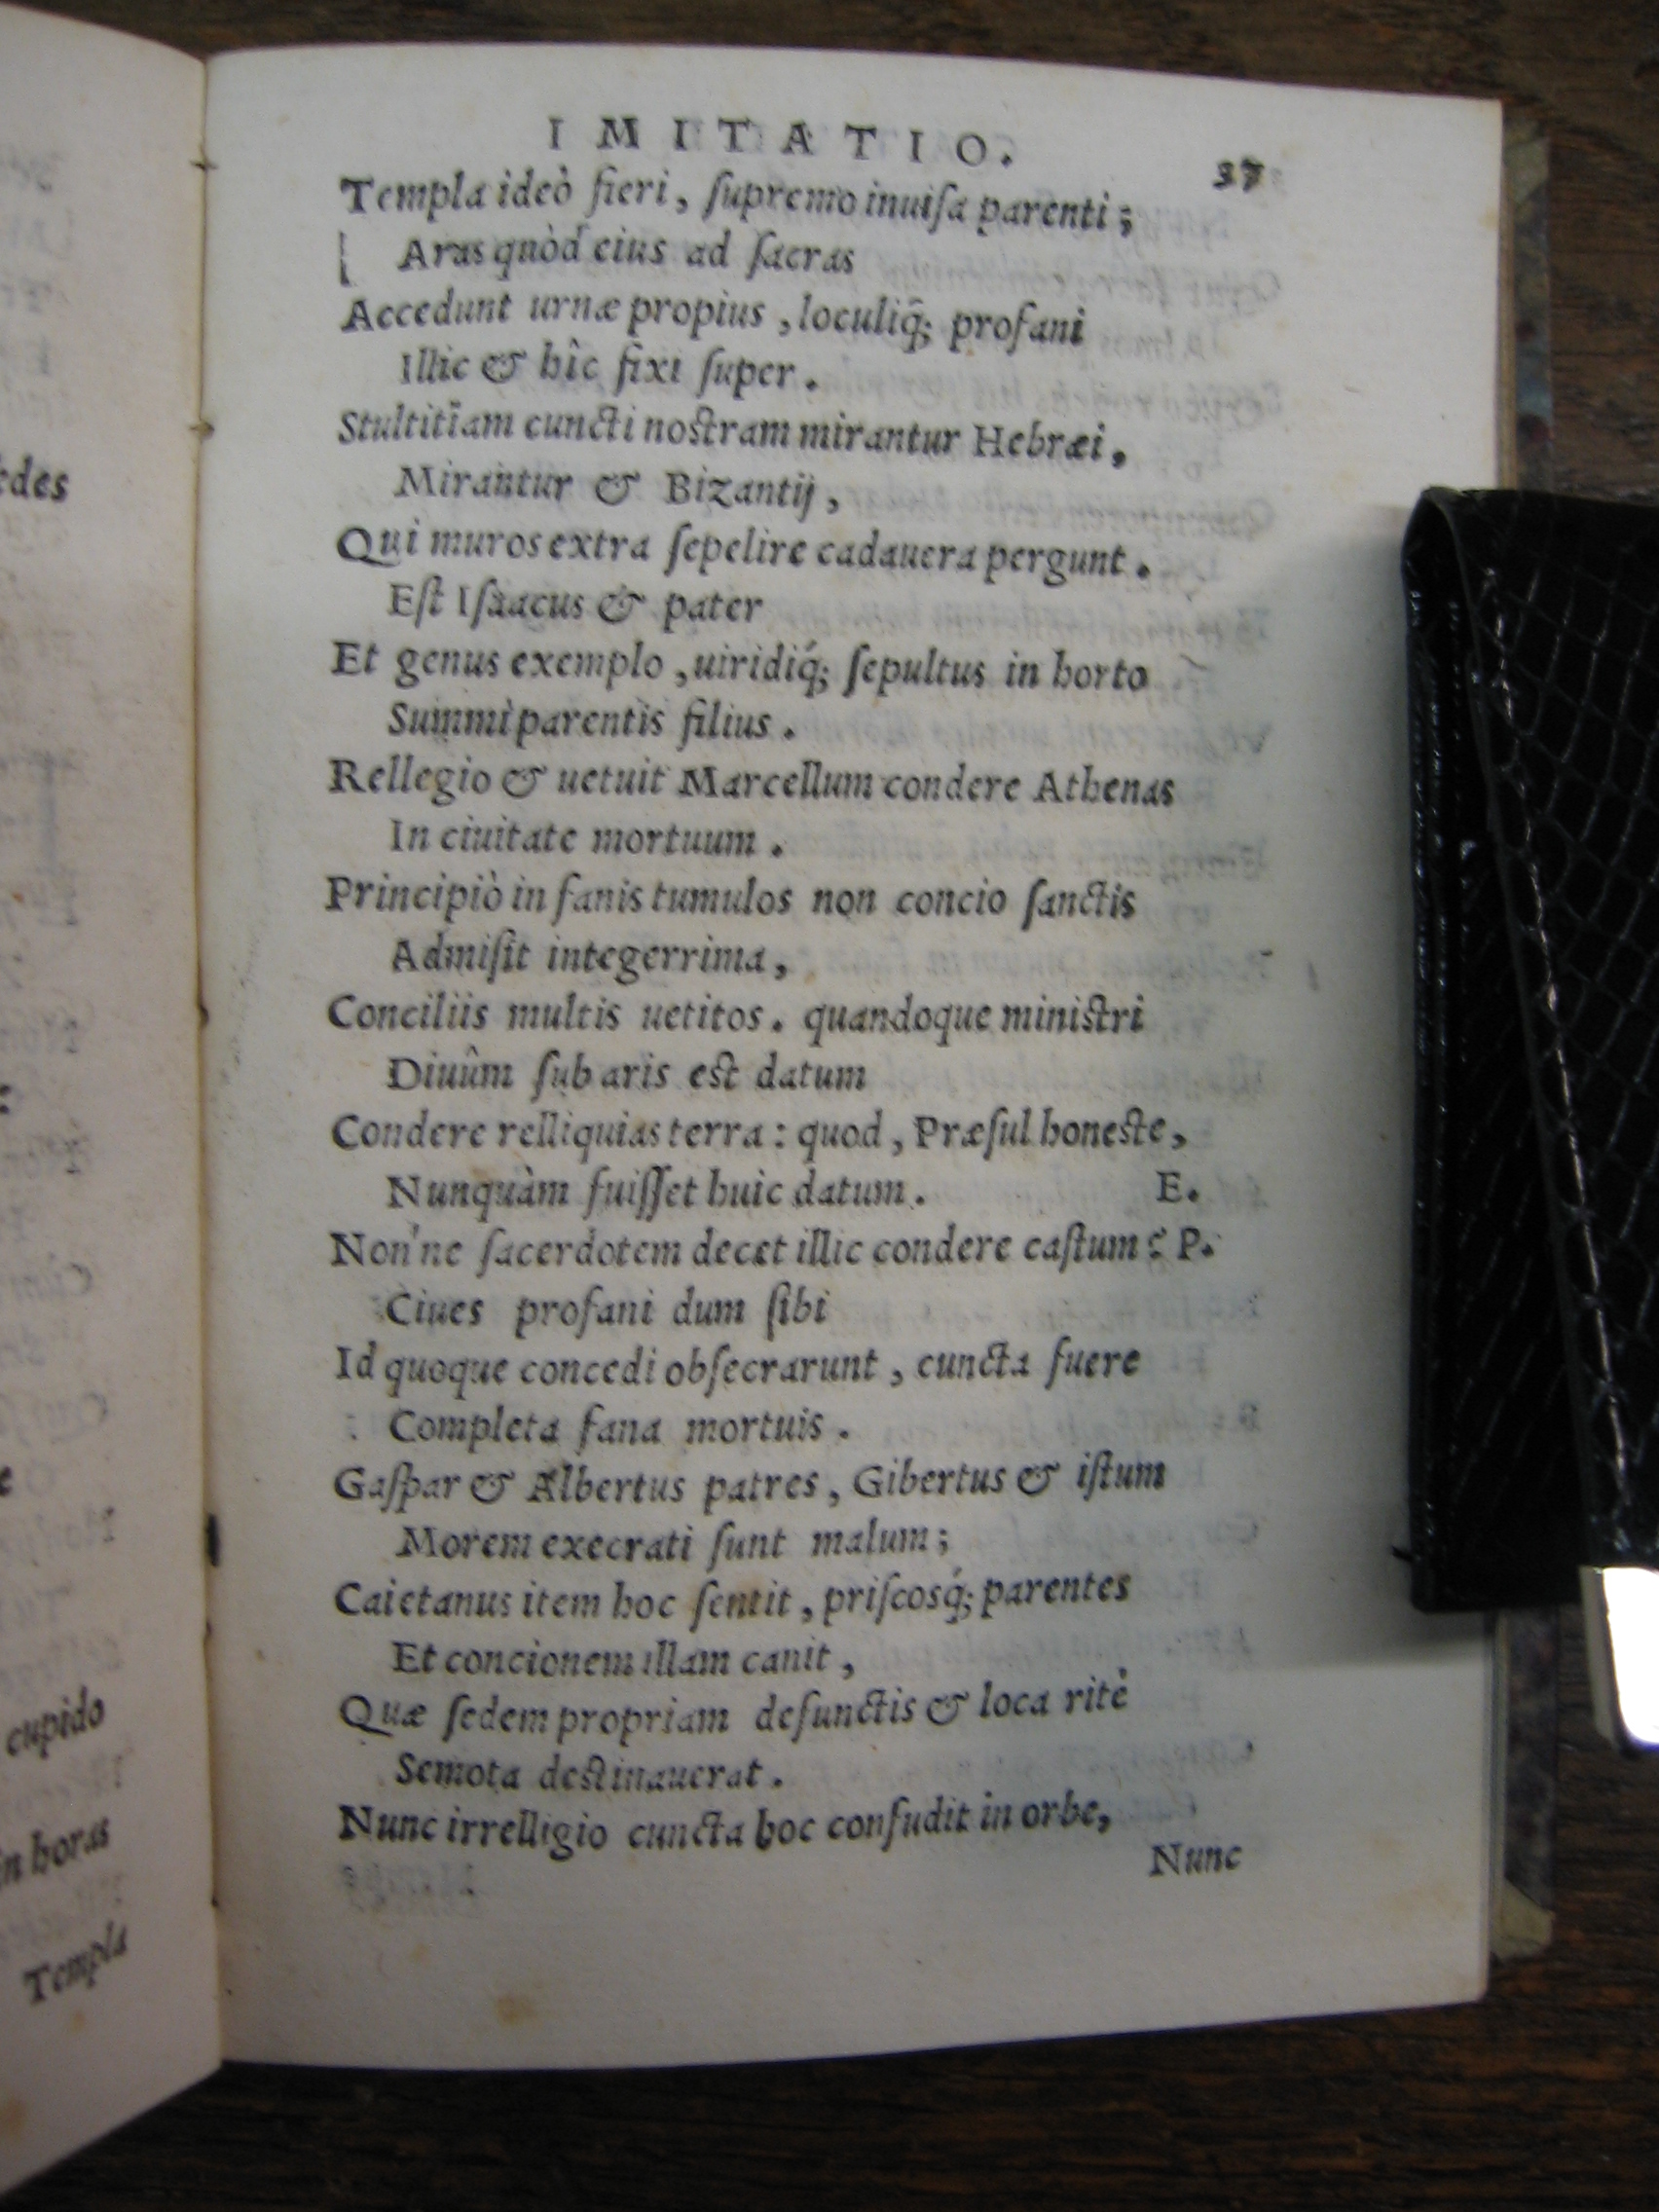 edes
cupido
in horas
Templa
IMITATIO. 37
Templa ideò fieri, ſupremo inuiſa parenti;
Aras quòd eius ad ſacras
Accedunt urnæ propius, loculiq̃; profani
Illic & hîc fixi ſuper.
Stultitiam cuncti noſtram mirantur Hebræi,
Mirantur & Bizantij,
Qui muros extra ſepelire cadauera pergunt.
Eſt Iſaacus & pater
Et genus exemplo, uiridiq́; ſepultus in horto
Summi parentis filius.
Rellegio & uetuit Marcellum condere Athenas
In ciuitate mortuum.
Principiò in fanis tumulos non concio ſanctis
Admiſit integerrima,
Conciliis multis uetitos. quandoque miniſtri
Diuûm ſub aris eſt datum
Condere relliquias terra: quod, Præſul honeſte,
Nunquàm fuiſſet huic datum. E.
Non'ne ſacerdotem decet illic condere caſtum? P.
Ciues profani dum ſibi
Id quoque concedi obſecrarunt, cuncta fuere
Completa fana mortuis.
Gaſpar & Albertus patres, Gibertus & iſtum
Morem execrati ſunt malum;
Caietanus item hoc ſentit, priſcosq́; parentes
Et concionem illam canit,
Quæ ſedem propriam defunctis & loca ritè
Semota deſtinauerat.
Nunc irrelligio cuncta hoc confudit in orbe,
Nunc